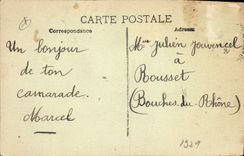 CARTE POSTALE
Correspondance
Adresse
Un bonjour
de ton
camarade.
Marcel
Mme julien Jouvencel
à
Rousset
(Bouches.du.Rhône)
1929